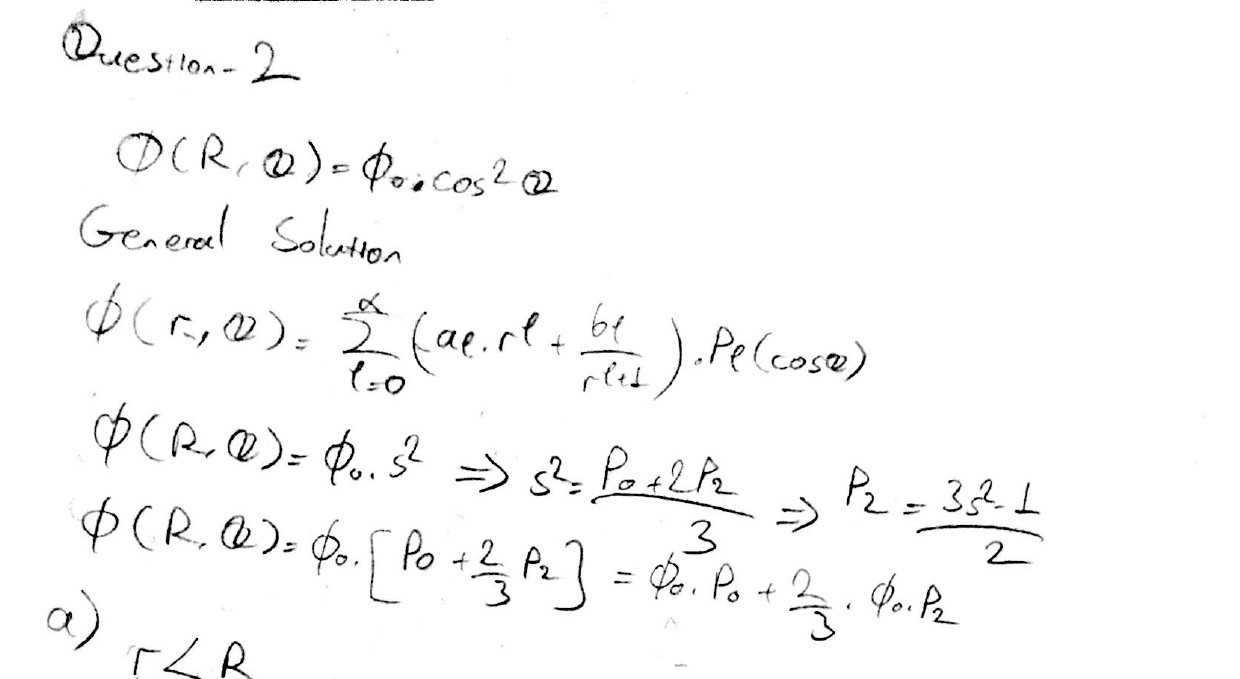 Question-2
Φ(R, θ) = ϕ₀.cos²θ
General Solution
ϕ(r, θ) = ∑_{l=0}^{∝} (a_l.r^l + b_l/r^{l+1}).P_l(cosθ)
ϕ(R, θ) = ϕ₀.s² ⇒ s² = (P₀+2P₂)/3 ⇒ P₂ = (3s²-1)/2
ϕ(R, θ) = ϕ₀.[P₀ + 2/3 P₂] = ϕ₀.P₀ + 2/3.ϕ₀.P₂
a)
r<R